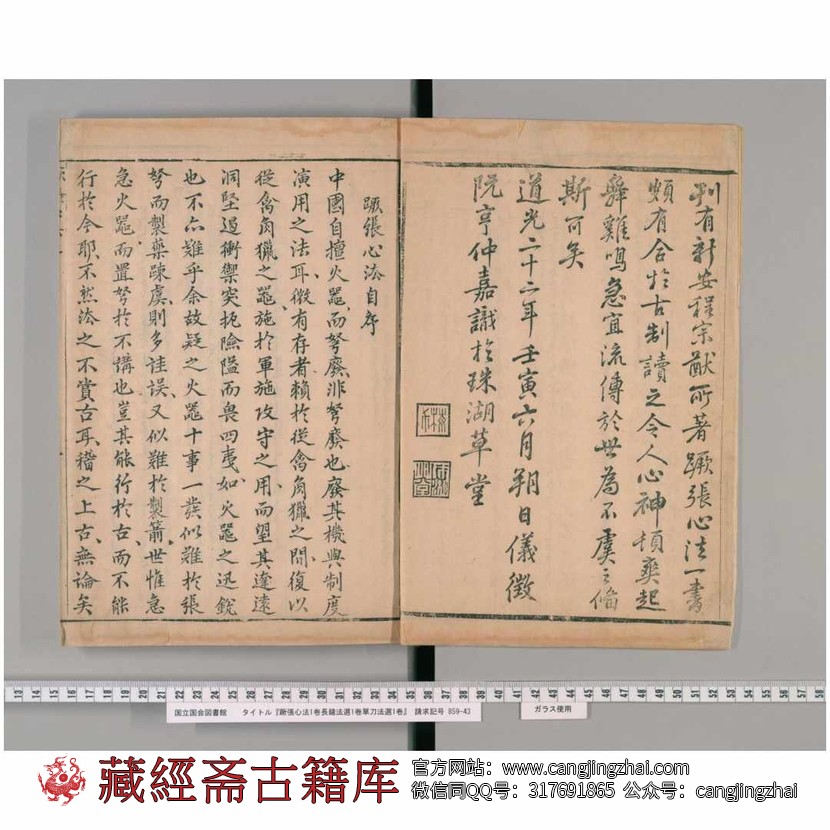 刊有新安程宗猷所著蹶張心法一書
頗有合於古制讀之令人心神頓爽起
舞雞鳴急宜流傳於世為不虞之備
斯可矣
道光二十二年壬寅六月朔日儀徵
阮亨仲嘉識於珠湖草堂
蹶張心法自序
中國自擅火器而弩廢非弩廢也廢其機與制度
演用之法耳後有存者賴於從禽角獵之間復以
從禽角獵之器施於軍旅攻守之用而望其達遠
洞堅遏衝禦突扼險隘而畏四夷如火器之迅銳
也不亦難乎余故疑之火器十事一發似難於張
弩而製藥疎虞則多詿誤又似難於製箭世惟急
急火器而置弩於不講也豈其能行於古而不能
行於今耶不然法之不賞古耳稽之上古無論矣
13 14 15 16 17 18 19 20 21 22 23 24 25 26 27 28 29 30 31 32 33 34 35 36 37 38 39 40 41 42 43 44 45 46 47 48 49 50 51 52 53 54 55 56 57 58
国立国会図書館 タイトル『蹶張心法1巻長鎗法選1巻單刀法選1巻』 請求記号 859-43
ガラス使用
藏經斋古籍库
官方网站：www.cangjingzhai.com
微信同QQ号：317691865 公众号：cangjingzhai